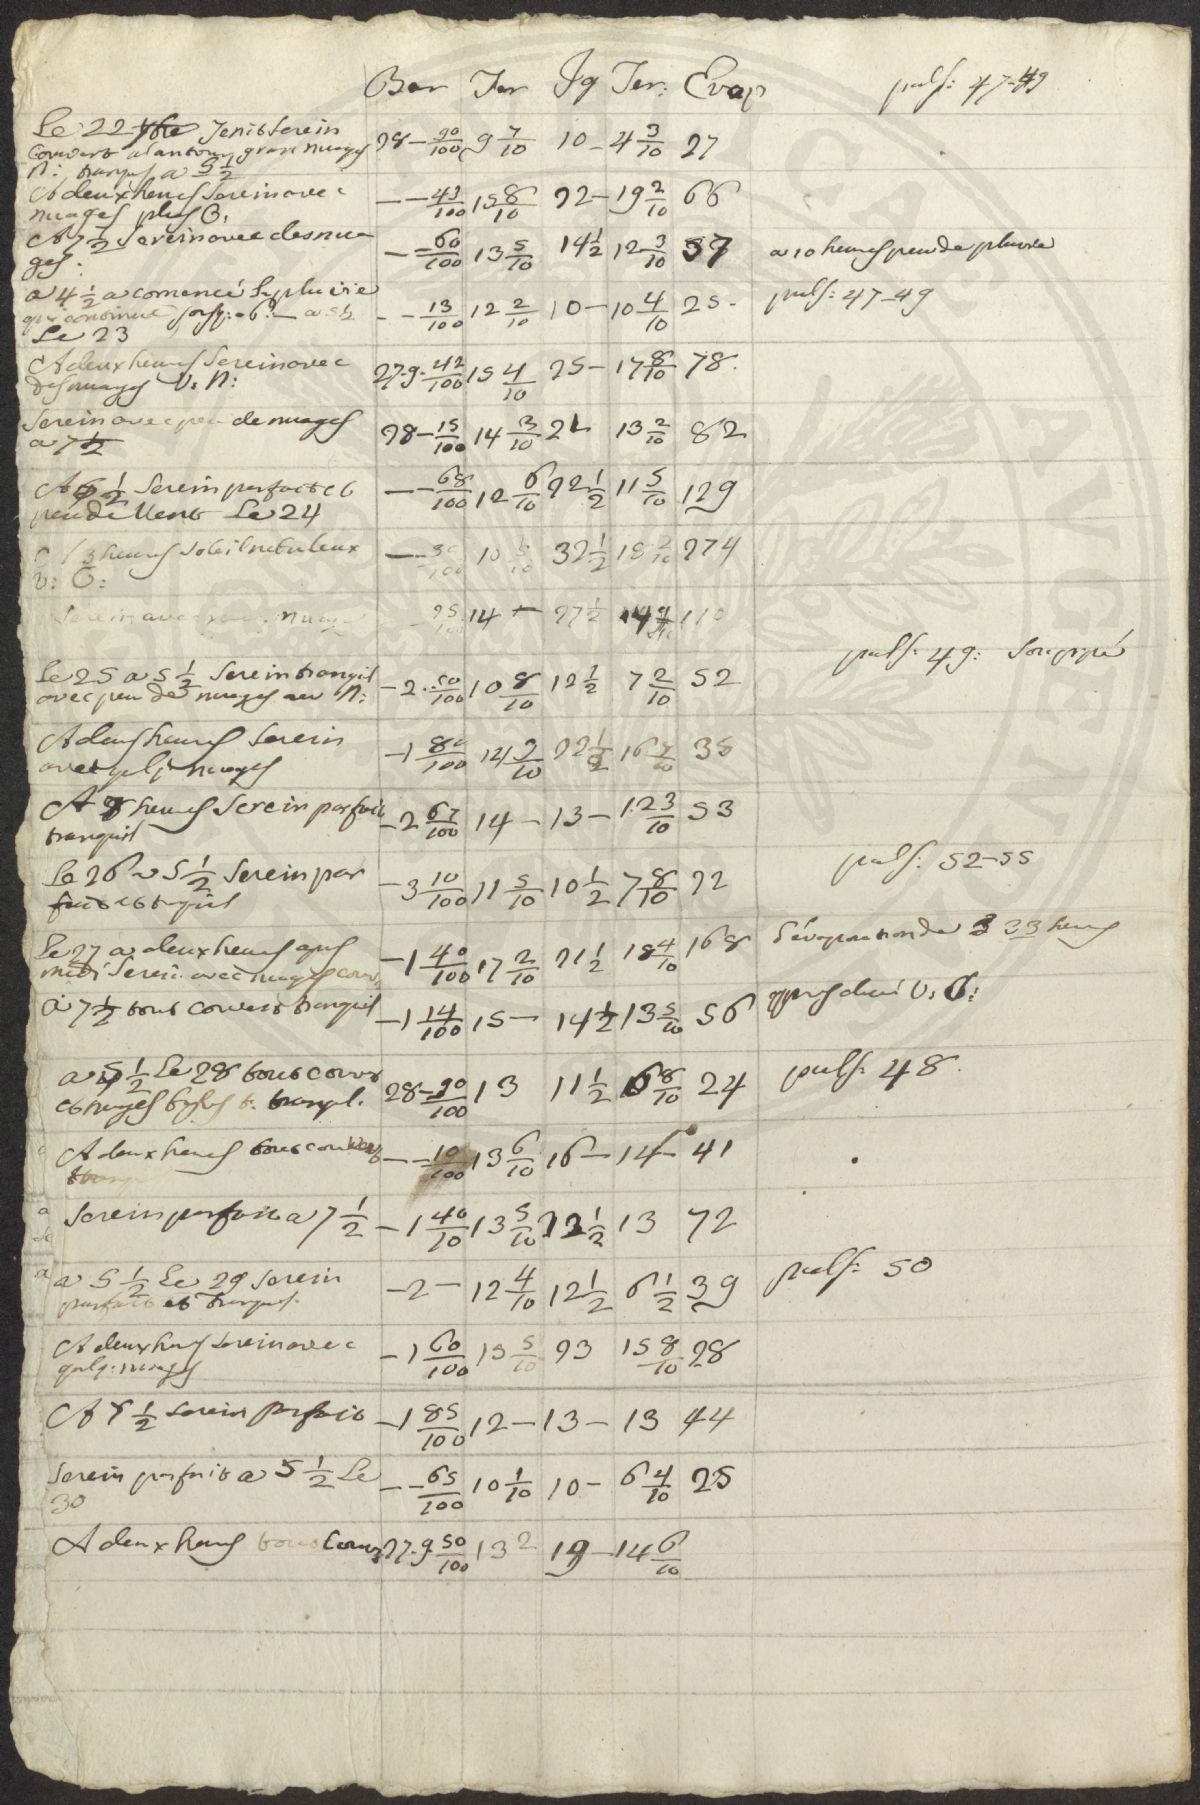 Bar Ter Jg Ter: Evap puls: 47-49
Le 22 Jenit serein
couvert alantour gros nuages 28 - 90/100 9 7/10 10 - 4 3/10 27
n: tranquil a 5 1/2
A deux heures serein avec - - 43/100 15 8/10 22 - 19 2/10 66
nuages plus O.
A 7 1/2 serein avec des nua- - - 60/100 13 5/10 14 1/2 12 3/10 57 a 10 heures peu de pluvie
ges:
a 4 1/2 a comencé la pluvie puls: 47-49
qui continue a 5 1/2 - - 13/100 12 2/10 10 - 10 4/10 25 -
Le 23
A deux heures serein avec
des nuages V: n: 27.9. 42/100 15 4/10 25 - 17 8/10 78.
Serein avec peu de nuages
a 7 1/2 28 - 15/100 14 3/10 21 13 2/10 82
A 5 1/2 serein parfait et
peu de vent Le 24 - - 68/100 12 6/10 22 1/2 11 5/10 129
3 heures soleil nebuleux - - 10 5/10 32 1/2 18 2/10 274
v: O:
serein avec nuages 25/100 14 - 27 1/2 14 110
puls: 49:
Le 25 a 5 1/2 serein tranquil
avec peu de nuages au n: - 2. 50/100 10 8/10 12 1/2 7 2/10 52
A deux heures serein
avec quelq nuages - 1 80/100 14 2/10 22 1/2 16 35
A 8 heures serein parfait
tranquil - 2 67/100 14 - 13 - 12 3/10 53
puls: 52-55
Le 26 a 5 1/2 serein par
fait et tranquil - 3 10/100 11 5/10 10 1/2 7 8/10 22
Le 27 a deux heures apres
midi serein avec nuages couv. - 1 40/100 17 2/10 21 1/2 18 4/10 168 l'evaporation de 33 heures
a 7 1/2 tout couvert tranquil - 1 14/100 15 - 14 1/2 13 5/10 56
a 5 1/2 Le 28 tout couvert puls: 48.
28 - 90/100 13 11 1/2 6 8/10 24
A deux heures tout couvert - - 10/100 13 6/10 16 - 14 - 41
Serein parfait a 7 1/2 - 1 40/10 13 5/10 12 1/2 13 72
puls: 50
a 5 1/2 Le 29 serein
parfait et tranquil. - 2 - 12 4/10 12 1/2 6 1/2 39
A deux heures serein avec
quelq: nuages - 1 60/100 15 5/10 23 15 8/10 28
A 7 1/2 serein parfait - 1 85/100 12 - 13 - 13 44
Serein parfait a 5 1/2 Le
30 - - 65/100 10 1/10 10 - 6 4/10 25
A deux heures tout couv 27.9 50/100 13 2 19 - 14 6/10